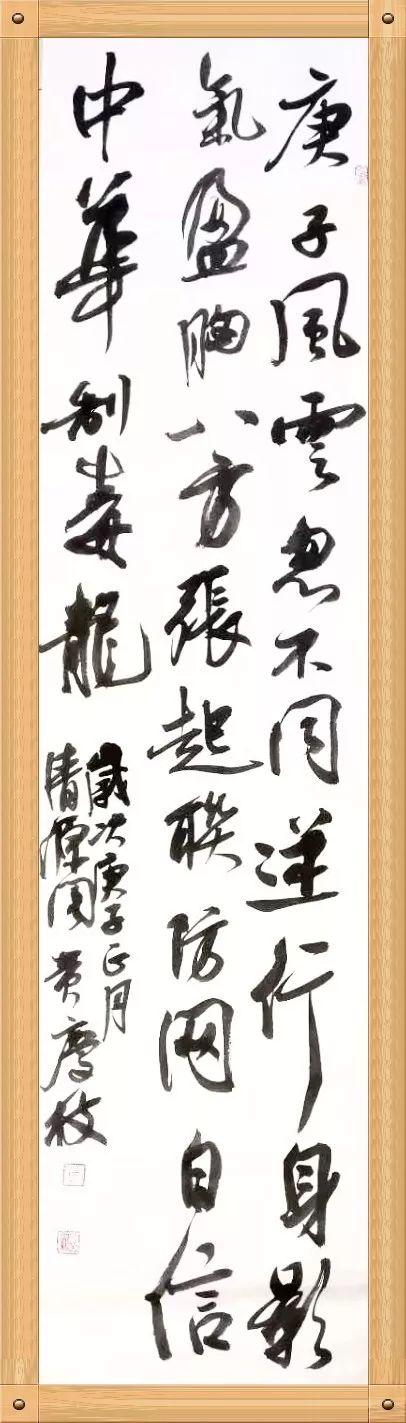 庚子風雲忽不同逆行身影
氣盈胸八方張起聯防网自信
中華制毒龍
歲次庚子正月
清源閣黄慶枝